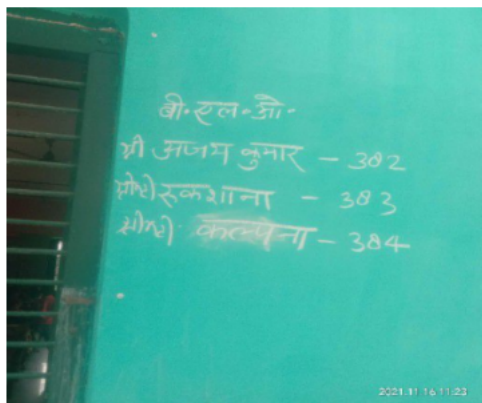 बी.एल.ओ.
श्री अजय कुमार - 382
श्रीमती रुकशाना - 383
श्रीमती कल्पना - 384
2021.11.16 11:23